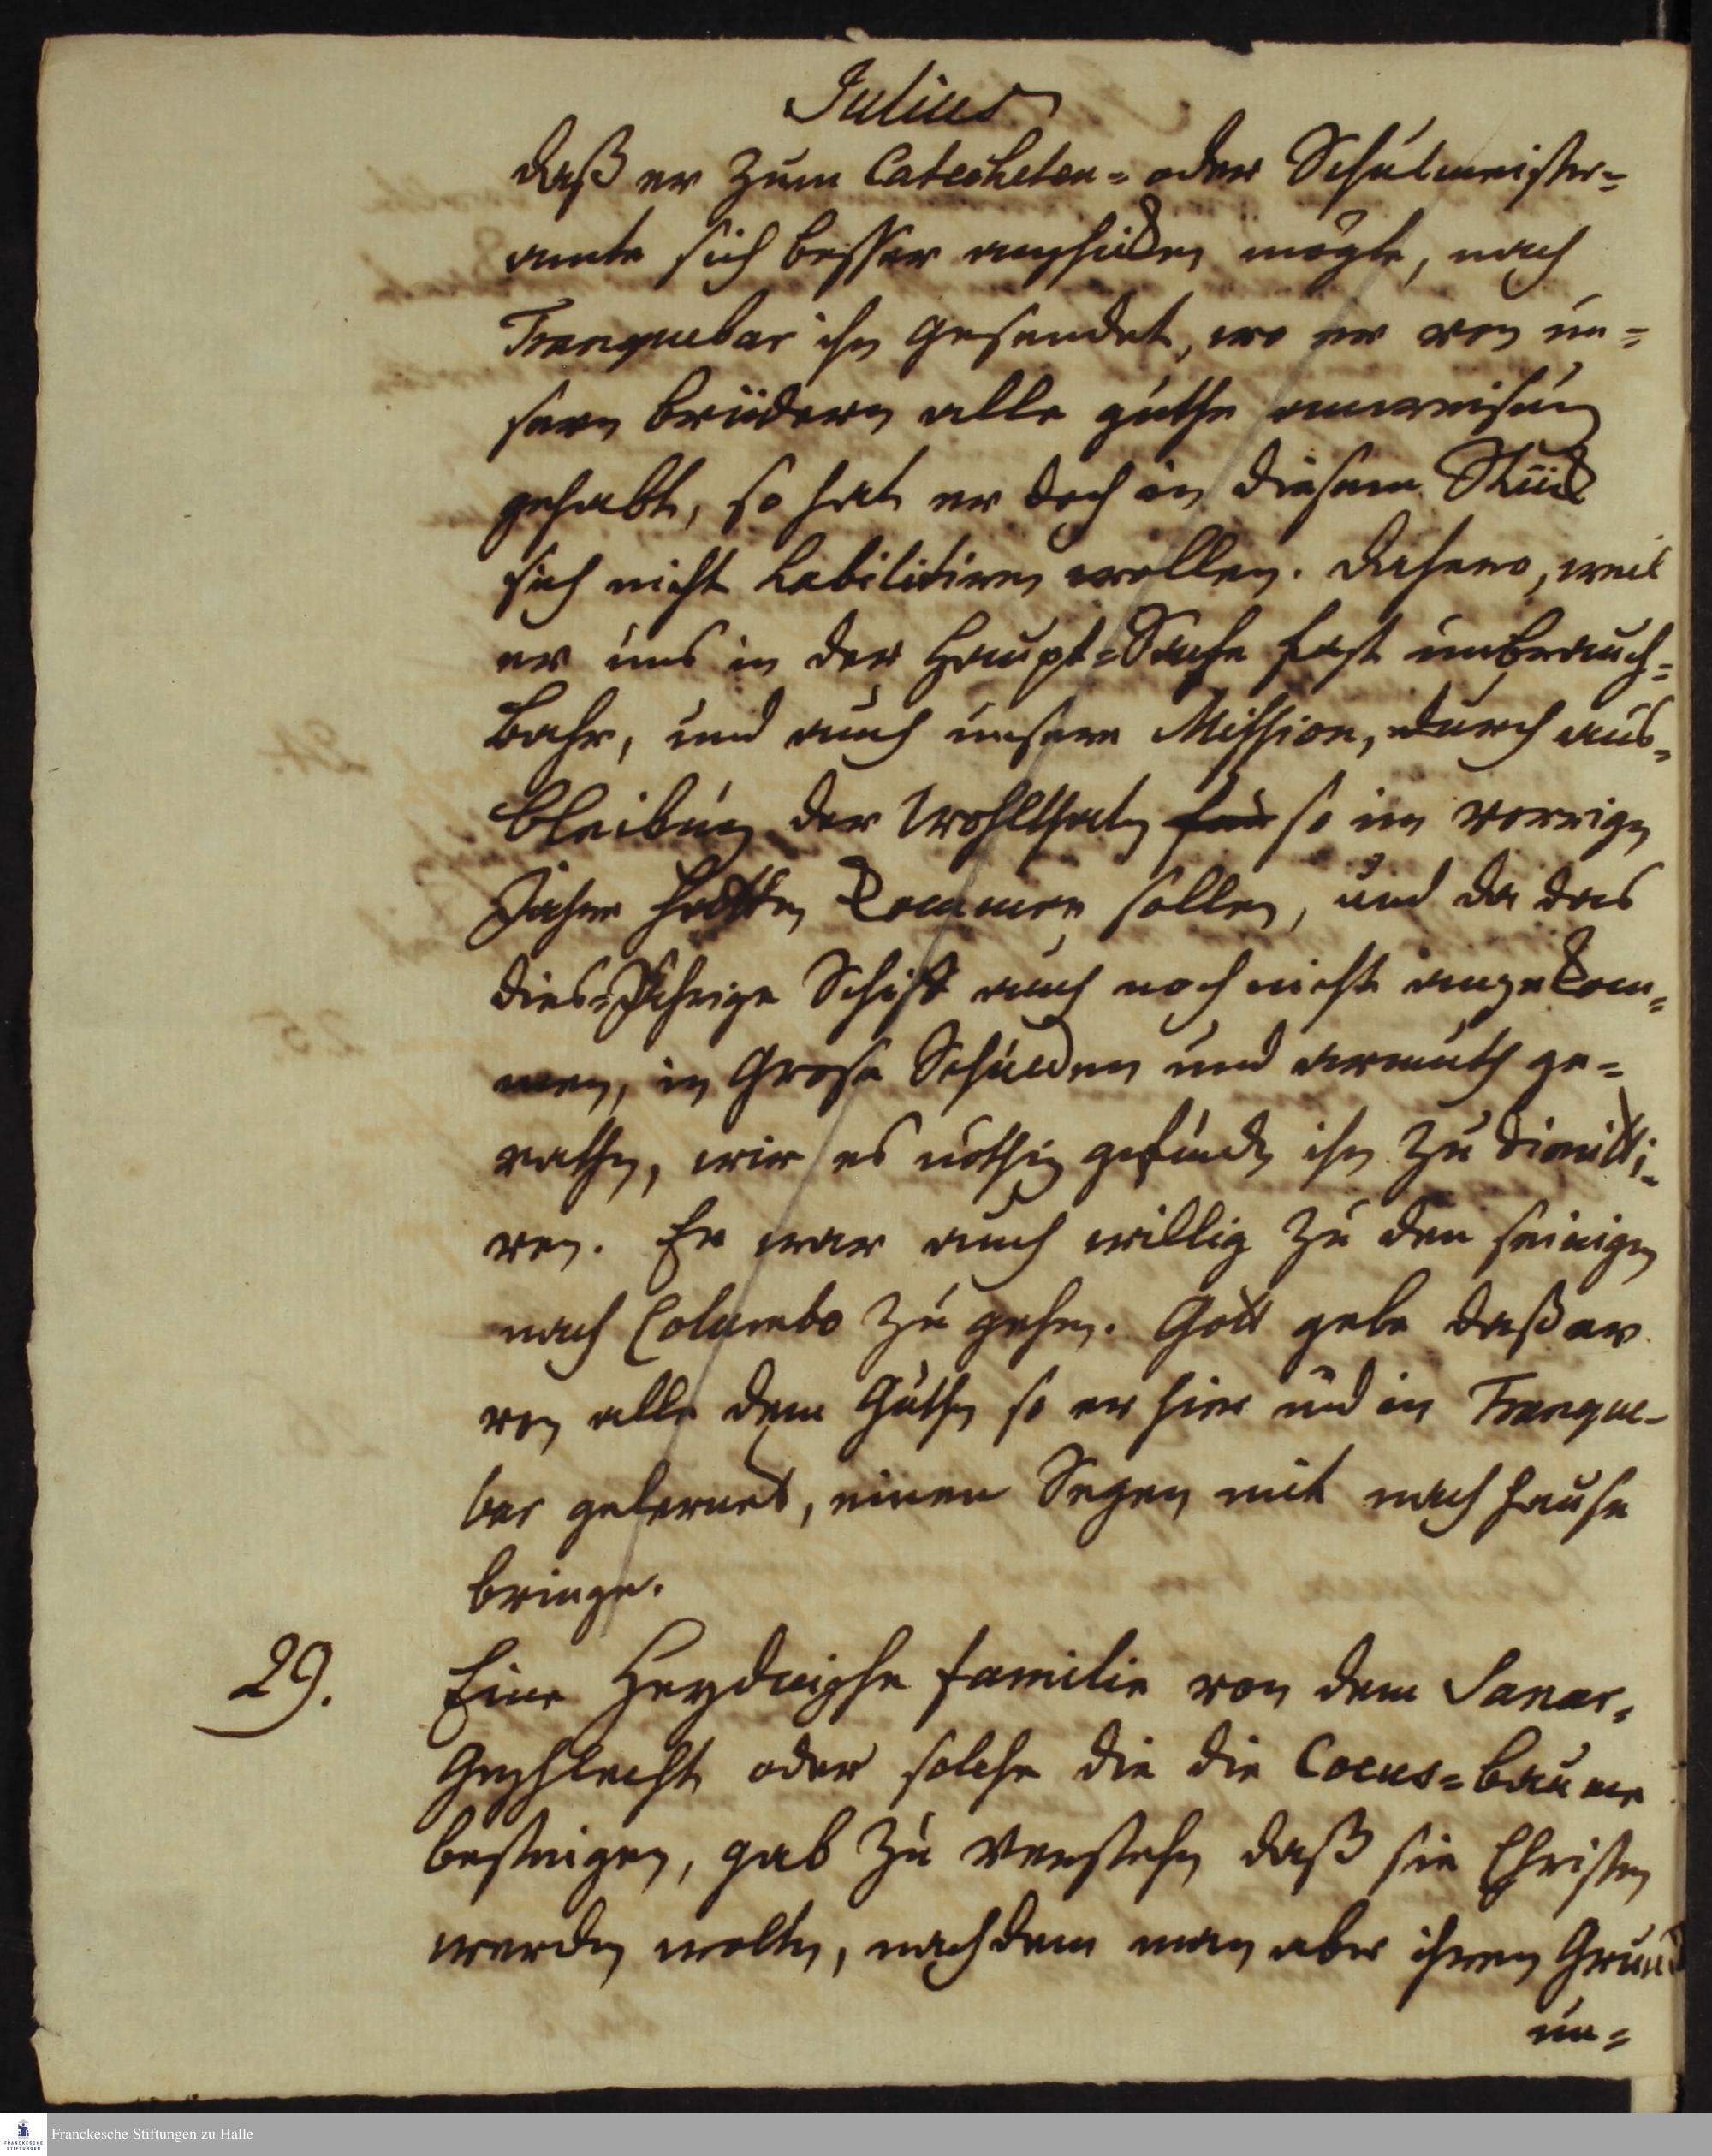 Julius
daß er zum Catecheten- oder Schulmeister-
amte sich besser anschicken mögte, nach
Tranquebar ihn gesendet, wo er von un-
sern brüdern alle guthe anweisung
gehabt, so hat er doch in diesem Stück
sich nicht habilitiren wollen. Dahero, weil
er uns in der Haupt-Sache fast unbrauch-
bahr, und auch unsere Mission, durch aus-
bleibung der Wohlthaten so im vorrigen
Jahre hätten kommen sollen, und da das
dies-Jährige Schiff auch noch nicht angekom-
men, in Grose Schulden und armuth ge-
rathen, wir es nöthig gefunden ihn zu dimitti-
ren. Er war auch willig zu den seinigen
nach Columbo zu gehen. Gott gebe daß er
von alle dem Guthen so er hier und in Tranque-
bar gelernet, einen Segen mit nach Hause
bringe.
29. Eine Heydnische familie von dem Sanar-
Geschlecht oder solche die die Cocus-bäume
besteigen, gab zu verstehen daß sie Christen
werden wolten, nachdem man aber ihren Grund
un-
Franckesche Stiftungen zu Halle